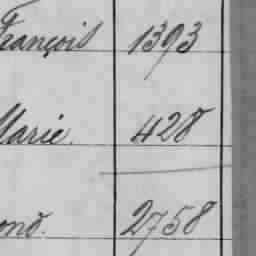 François 1393
Marie. 428
ond. 2758